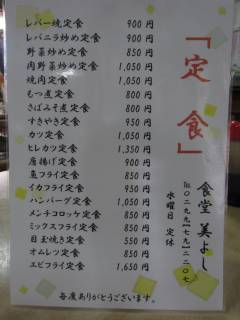 「定食」
レバー焼定食 900円
レバニラ炒め定食 900円
野菜炒め定食 850円
肉野菜炒め定食 1,050円
焼肉定食 1,050円
もつ煮定食 800円
さばみそ煮定食 800円
すきやき定食 950円
カツ定食 1,050円
ヒレカツ定食 1,350円
唐揚げ定食 900円
魚フライ定食 850円
イカフライ定食 950円
ハンバーグ定食 1,050円
メンチコロッケ定食 850円
ミックスフライ定食 850円
目玉焼き定食 550円
オムレツ定食 850円
エビフライ定食 1,650円
食堂 美よし
℡〇二九九(七九)二二〇七
水曜日 定休
毎度ありがとうございます。